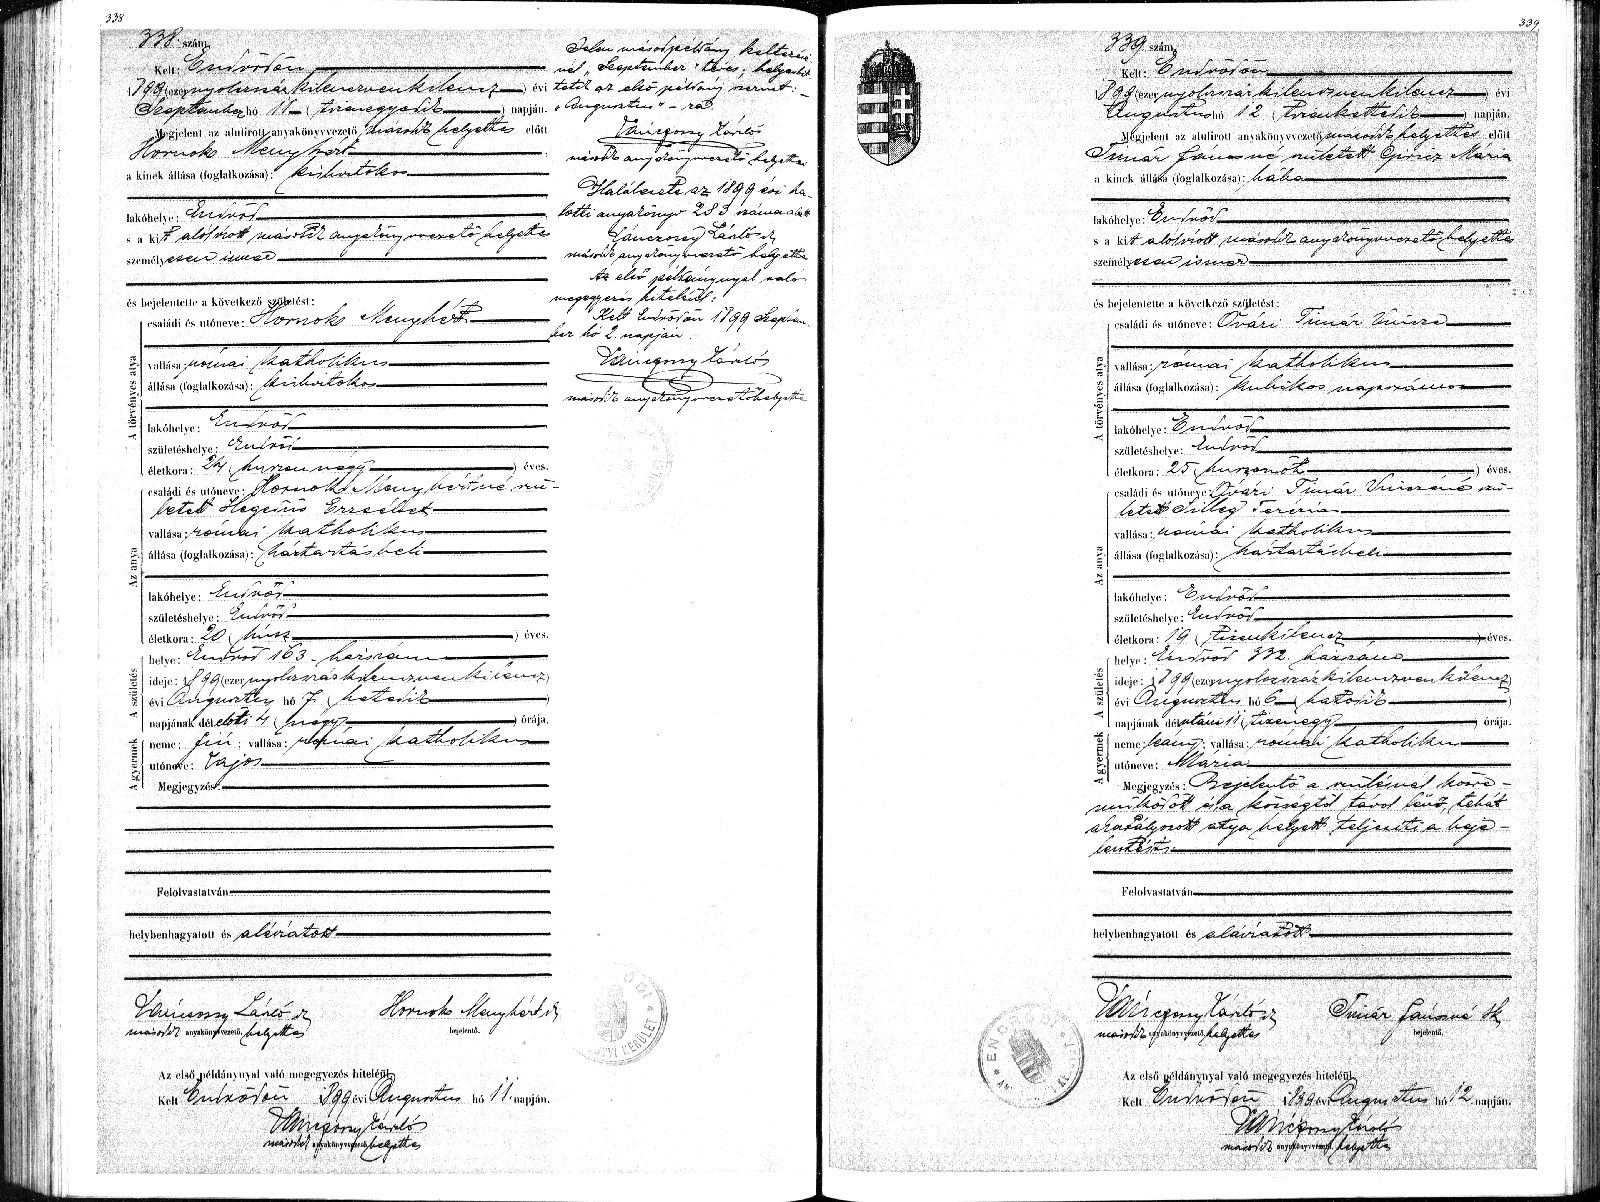 338
338. szám.
Kelt: Endrődön
1899 (ezernyolczszázkilenczvenkilencz) évi
Szeptember hó 11 (tizenegyedik) napján.
Megjelent az alulirott anyakönyvvezető második helyettes előtt
Hornok Menyhért
a kinek állása (foglalkozása): kisbirtokos
lakóhelye: Endrőd
s a kit alólirott második anyakönyvvezető helyettes
személyesen ismer
és bejelentette a következő születést:
A törvényes atya
családi és utóneve: Hornok Menyhért
vallása: római katholikus
állása (foglalkozása): kisbirtokos
lakóhelye: Endrőd
születéshelye: Endrőd
életkora: 24 (huszonnégy) éves.
Az anya
családi és utóneve: Hornok Menyhértné szü-
letett Hegedüs Erzsébet
vallása: római katholikus
állása (foglalkozása): háztartásbeli
lakóhelye: Endrőd
születéshelye: Endrőd
életkora: 20 (húsz) éves.
A születés
helye: Endrőd 163. házszám
ideje: 1899 (ezernyolczszázkilenczvenkilencz)
évi Augusztus hó 7 (hetedik)
napjának délelőtti 4 (négy) órája.
A gyermek
neme: fiú; vallása: római katholikus
utóneve: Lajos
Megjegyzés:
Felolvastatván
helybenhagyatott és aláiratott
Vánczony László sk
második anyakönyvvezető helyettes
Hornok Menyhért sk
bejelentő.
Az első példánynyal való megegyezés hiteléül
Kelt Endrődön 1899 évi Augusztus hó 11. napján.
Vánczony László
második anyakönyvvezető helyettes
Jelen másodpéldány keltezésé-
nél „Szeptember" téves; helyesbit-
tetik az első példány szerint:
„Augusztus" - ra
Vánczony László
második anyakönyvvezető helyettes
Halálesete az 1899 évi ha-
lotti anyakönyv 283 száma alatt
Vánczony László sk
második anyakönyvvezető helyettes
Az első példánynyal való
megegyezés hiteléül:
Kelt Endrődön 1899 Szeptem-
ber hó 2. napján.
Vánczony László
második anyakönyvvezető helyettes
339
339. szám.
Kelt: Endrődön
1899 (ezernyolczszázkilenczvenkilencz) évi
Augusztus hó 12 (tizenkettedik) napján.
Megjelent az alulirott anyakönyvvezető második helyettes előtt
Timár Jánosné született Mária
a kinek állása (foglalkozása): bába
lakóhelye: Endrőd
s a kit alólirott második anyakönyvvezető helyettes
személyesen ismer
és bejelentette a következő születést:
A törvényes atya
családi és utóneve: Óvári Timár Vincze
vallása: római katholikus
állása (foglalkozása): kubikos napszámos
lakóhelye: Endrőd
születéshelye: Endrőd
életkora: 25 (huszonöt) éves.
Az anya
családi és utóneve: Óvári Timár Vinczéné szü-
letett Terézia
vallása: római katholikus
állása (foglalkozása): háztartásbeli
lakóhelye: Endrőd
születéshelye: Endrőd
életkora: 19 (tizenkilencz) éves.
A születés
helye: Endrőd 332. házszám
ideje: 1899 (ezernyolczszázkilenczvenkilencz)
évi Augusztus hó 6 (hatodik)
napjának délutáni 11 (tizenegy) órája.
A gyermek
neme: leány; vallása: római katholikus
utóneve: Mária
Megjegyzés: Bejelentő a szülésnél közre-
működött és a községtől távol lévő, tehát
akadályozott atya helyett teljesiti a beje-
lentést.
Felolvastatván
helybenhagyatott és aláiratott
Vánczony László sk
második anyakönyvvezető helyettes
Timár Jánosné sk
bejelentő.
Az első példánynyal való megegyezés hiteléül
Kelt Endrődön 1899 évi Augusztus hó 12. napján.
Vánczony László
második anyakönyvvezető helyettes